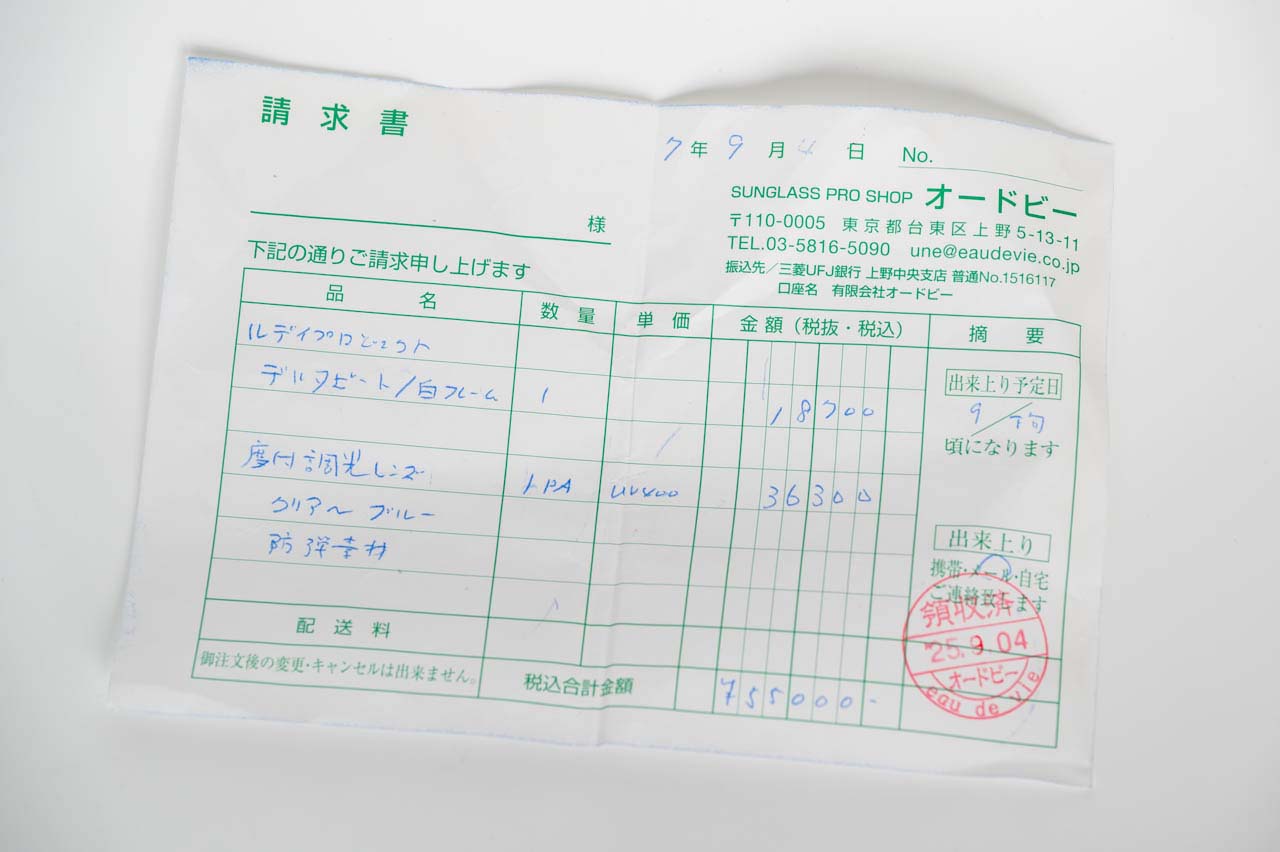 請求書
7年 9月 4日 No.
SUNGLASS PRO SHOP オードビー
〒110-0005 東京都台東区上野5-13-11
TEL.03-5816-5090 une@eaudevie.co.jp
振込先/三菱UFJ銀行 上野中央支店 普通No.1516117
口座名 有限会社オードビー
様
下記の通りご請求申し上げます
品名 数量 単価 金額(税抜・税込) 摘要
ルディプロジェクト
デルタビート/白フレーム 1 18700
度付調光レンズ 1PA UV400 36300
クリア〜ブルー
防弾素材
配送料
御注文後の変更・キャンセルは出来ません。
税込合計金額 ¥55000-
出来上り予定日
9/下旬
頃になります
出来上り
携帯・メール・自宅
ご連絡致します
領収済
'25.9.04
オードビー
eau de vie